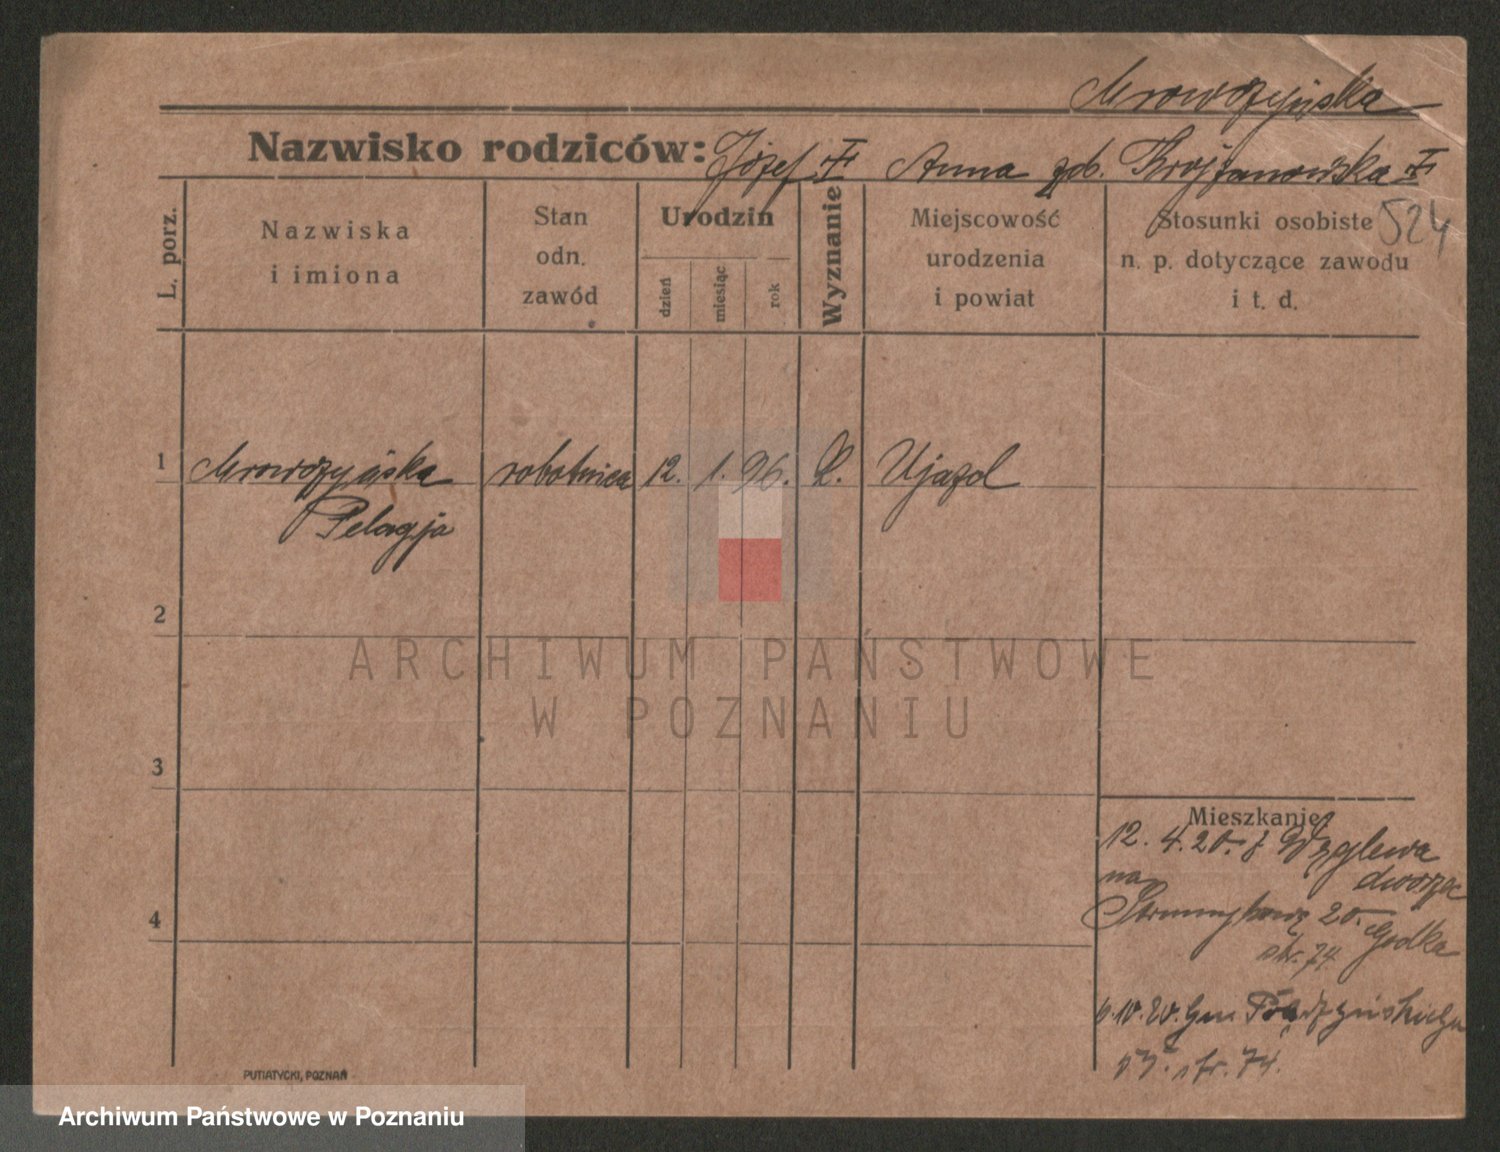 Mrowczyńska
Nazwisko rodziców: Józef Anna zd. Krojzanowska
524
L. porz.
Nazwiska
i imiona
Stan
odn.
zawód
Urodzin
dzień
miesiąc
rok
Wyznanie
Miejscowość
urodzenia
i powiat
Stosunki osobiste
n. p. dotyczące zawodu
i t. d.
1 Mrowczyńska robotnica 12. 1. 96. k. Ujazd
Pelagja
2
ARCHIWUM PAŃSTWOWE
W POZNANIU
3
Mieszkanie
12. 4. 20. z Węglewa
na dworzec
4
20. Godka
str. 74.
6.10.20. Gen Prądzyńskiego
str. 74.
PUTIATYCKI, POZNAŃ
Archiwum Państwowe w Poznaniu